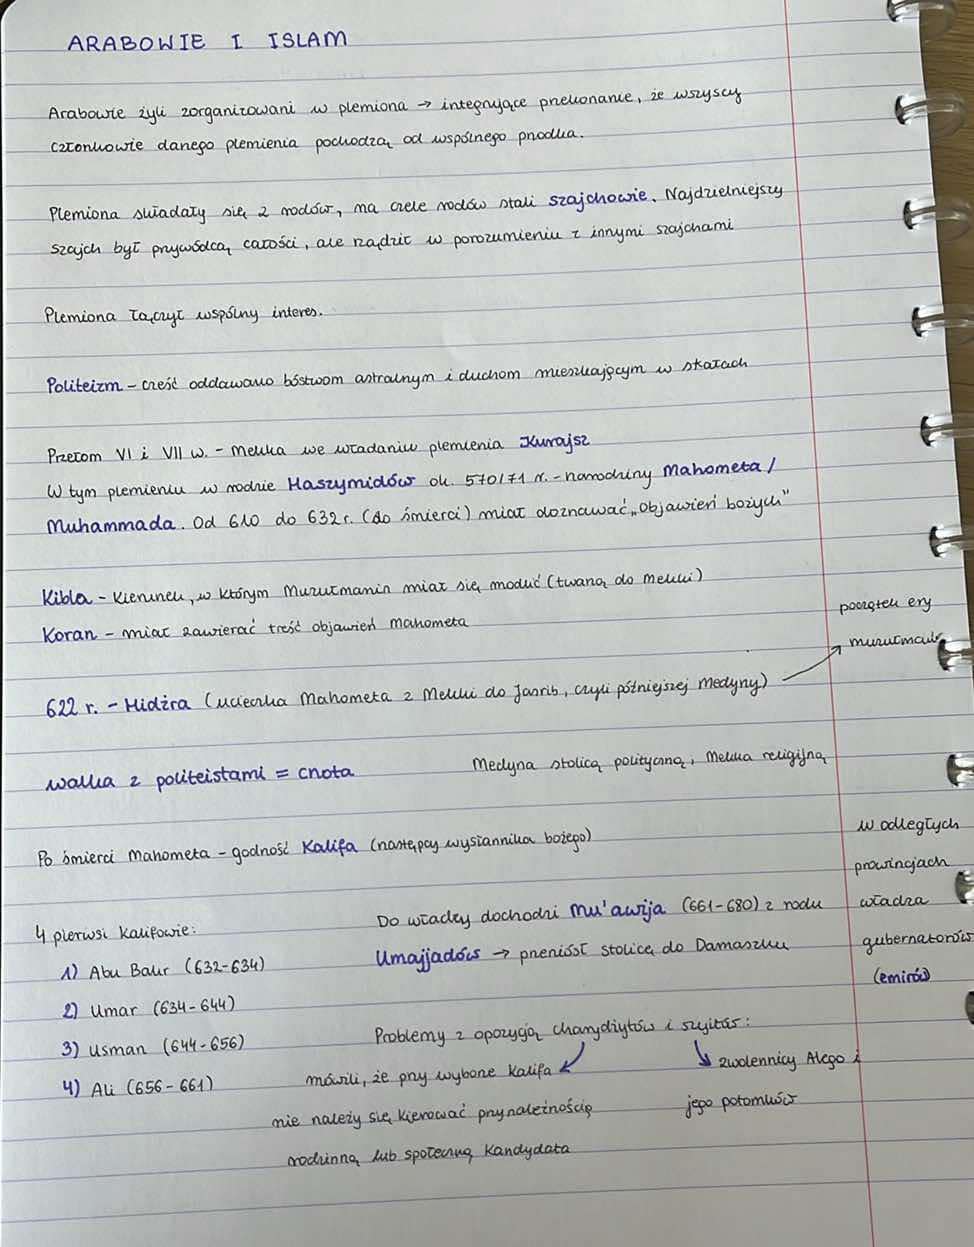 ARABOWIE I ISLAM
Arabowie żyli zorganizowani w plemiona → integrujące przekonanie, że wszyscy
członkowie danego plemienia pochodzą od wspólnego przodka.
Plemiona składały się z rodów, na czele rodów stali szajchowie. Najdzielniejszy
szajch był przywódcą całości, ale rządził w porozumieniu z innymi szajchami
Plemiona łączył wspólny interes.
Politeizm – cześć oddawano bóstwom astralnym i duchom mieszkającym w skałach
Przełom VI i VII w. – Mekka we władaniu plemienia Kurajsz
W tym plemieniu w rodzie Haszymidów ok. 570/71 r. – narodziny Mahometa /
Muhammada. Od 610 do 632 r. (do śmierci) miał doznawać „objawień bożych”
Kibla – kierunek, w którym Muzułmanin miał się modlić (twarzą do Mekki)
Koran – miał zawierać treść objawień Mahometa
początek ery
622 r. – Hidżra (ucieczka Mahometa z Mekki do Jasrib, czyli późniejszej Medyny)
walka z politeistami = cnota
Medyna stolicą polityczną, Mekka religijną
Po śmierci Mahometa – godność Kalifa (następcy wysłannika bożego)
w odległych
prowincjach
władza
gubernatorów
(emirów)
4 pierwsi kalifowie:
1) Abu Bakr (632-634)
2) Umar (634-644)
3) Usman (644-656)
4) Ali (656-661)
Do władzy dochodzi Mu'awija (661-680) z rodu
Umajjadów → przeniósł stolicę do Damaszku
Problemy z opozycją charydżytów i szyitów:
mówili, że przy wyborze kalifa
nie należy się kierować przynależnością
rodzinną lub społeczną kandydata
zwolennicy Alego i
jego potomków